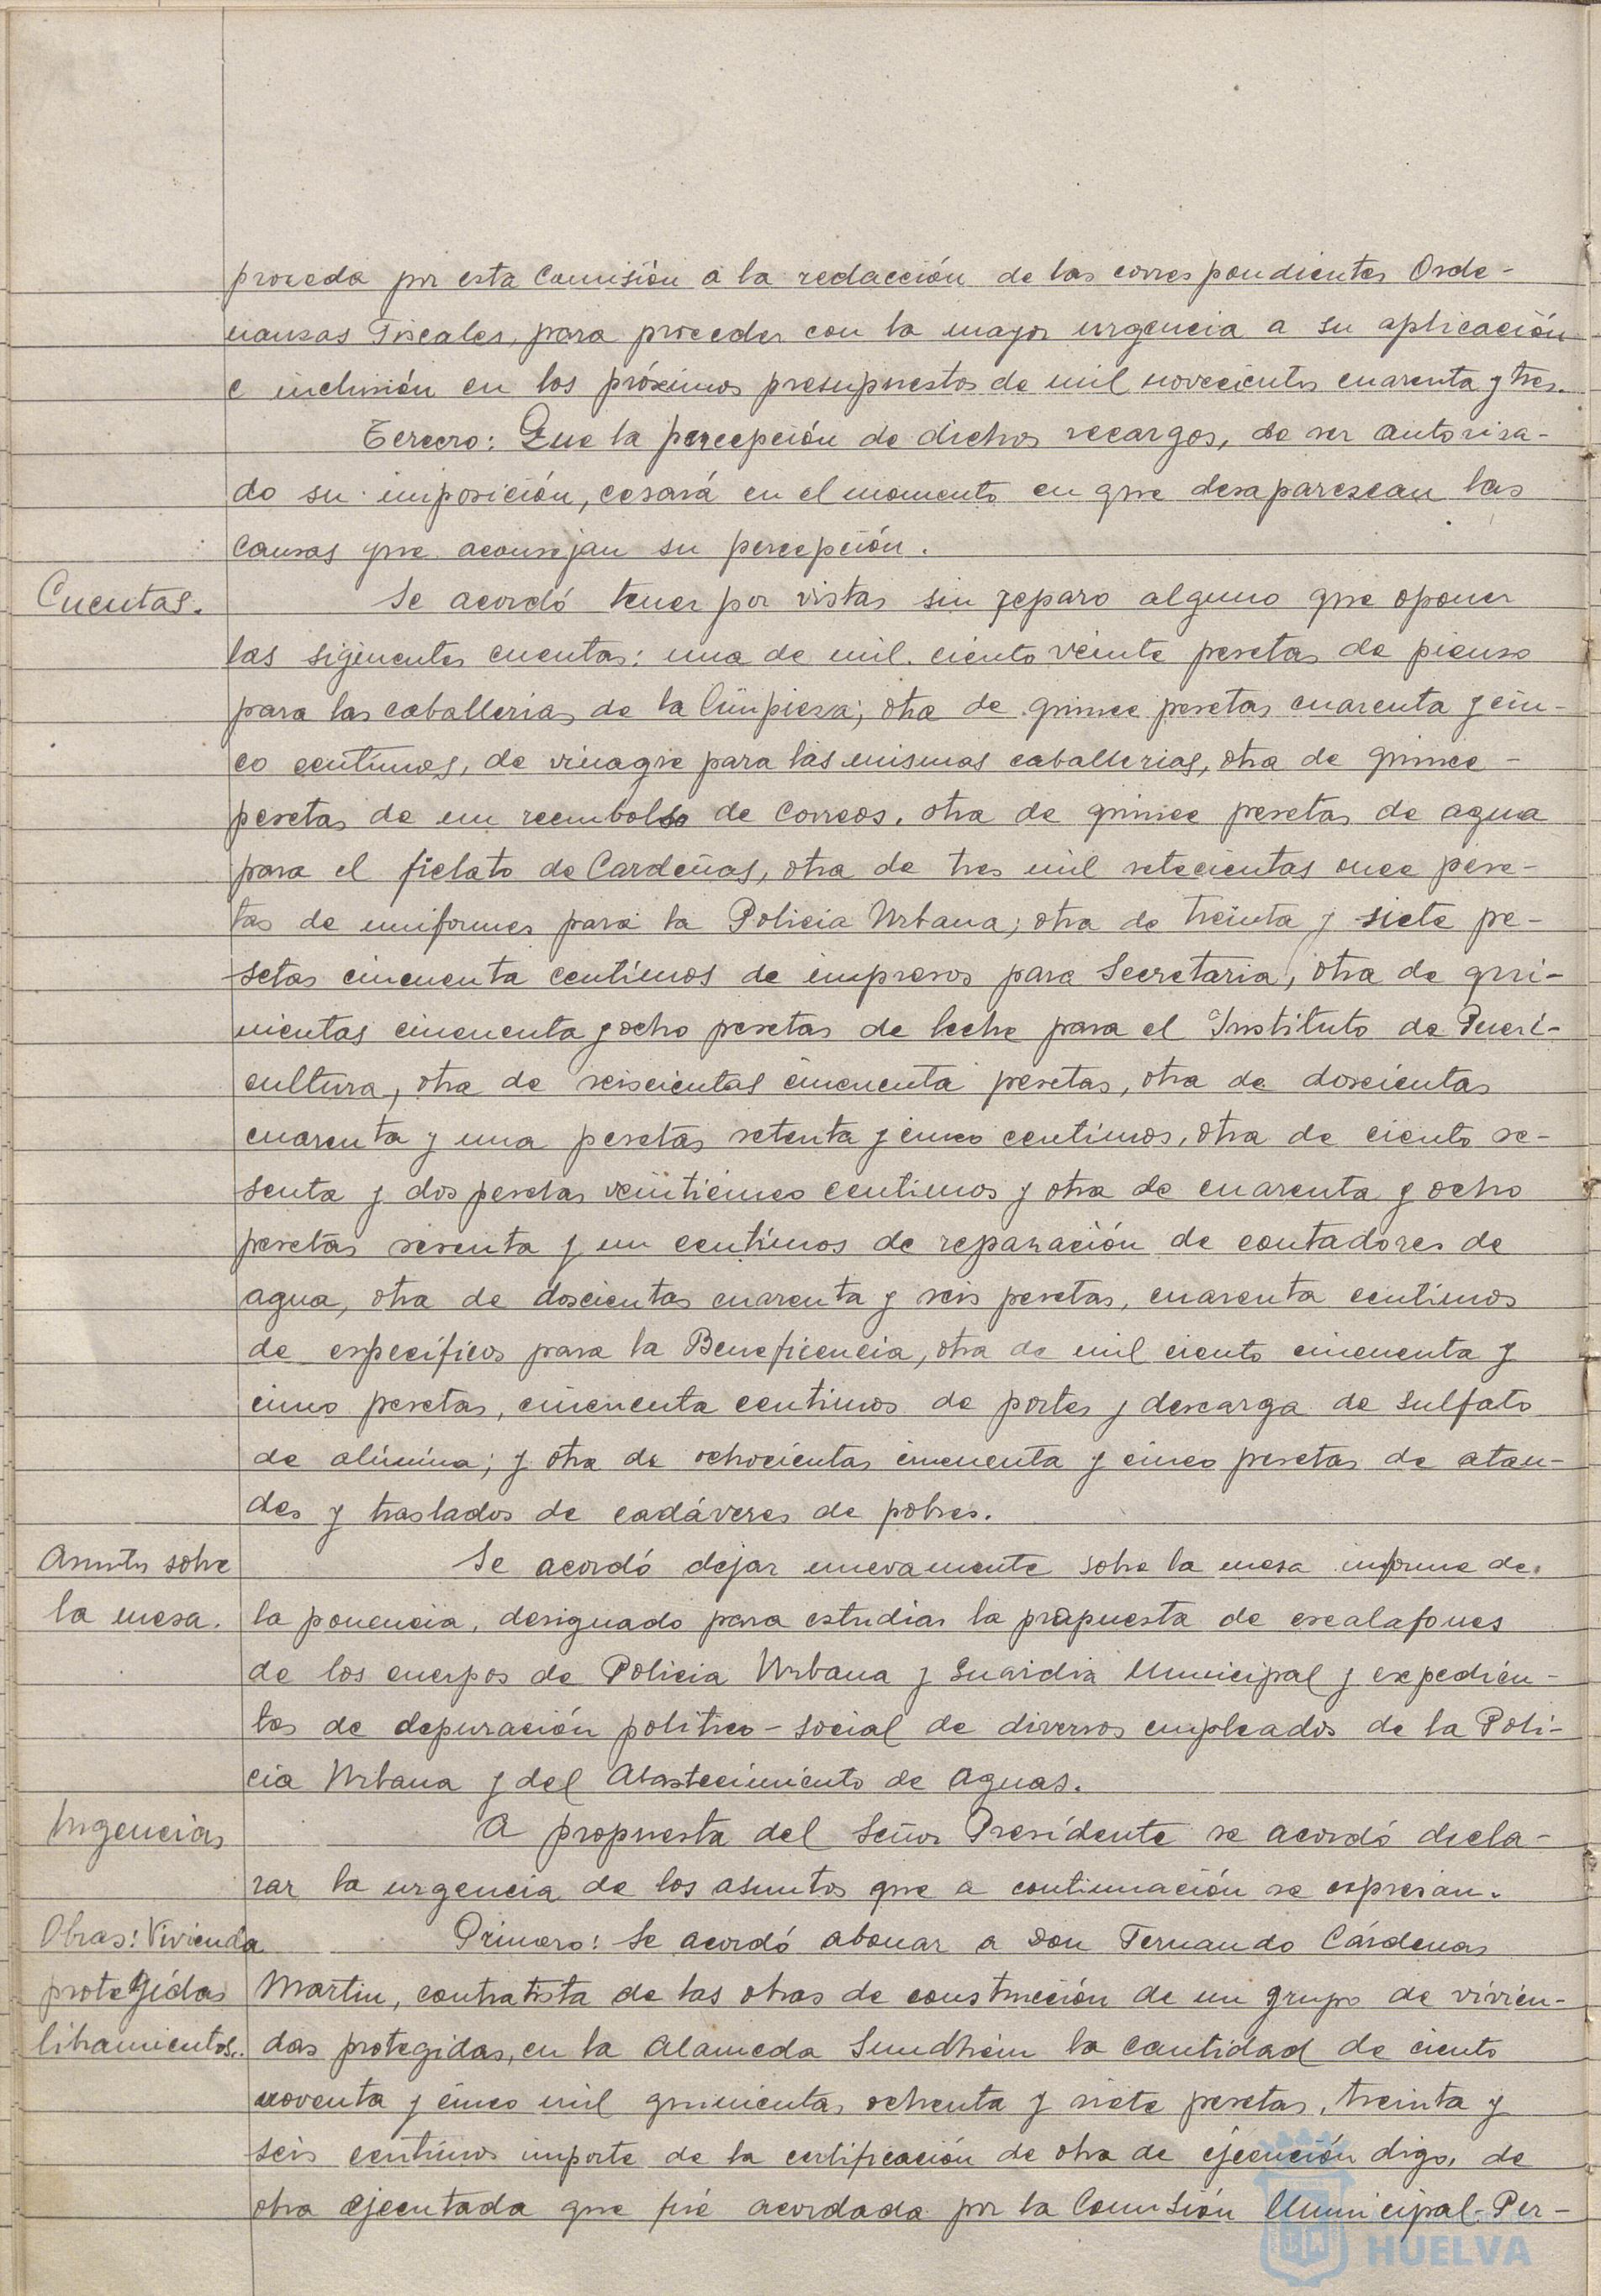 proceda por esta Comisión a la redacción de las correspondientes Orde-
nanzas Fiscales, para proceder con la mayor urgencia a su aplicación
e inclusión en los próximos presupuestos de mil novecientos cuarenta y tres.
Tercero: Que la percepción de dichos recargos, de ser autoriza-
do su imposición, cesará en el momento en que desaparezcan las
causas que aconsejan su percepción.
Cuentas.
Se acordó tener por vistas sin reparo alguno que oponer
las siguientes cuentas: una de mil ciento veinte pesetas de pienso
para las caballerias de la limpieza; otra de quince pesetas cuarenta y cin-
co centimos, de vinagre para las mismas caballerias, otra de quince -
pesetas de un reembolso de Correos, otra de quince pesetas de agua
para el fielato de Cardeñas, otra de tres mil setecientas once pese-
tas de uniformes para la Policia Urbana; otra de treinta y siete pe-
setas cincuenta centimos de impresos para Secretaria, otra de qui-
nientas cincuenta y ocho pesetas de leche para el Instituto de Pueri-
cultura, otra de seiscientas cincuenta pesetas, otra de doscientas
cuarenta y una pesetas setenta y cinco centimos, otra de ciento se-
senta y dos pesetas veinticinco centimos y otra de cuarenta y ocho
pesetas sesenta y un centimos de reparación de contadores de
agua, otra de doscientas cuarenta y seis pesetas, cuarenta centimos
de específicos para la Beneficencia, otra de mil ciento cincuenta y
cinco pesetas, cincuenta centimos de portes y descarga de sulfato
de alúmina; y otra de ochocientas cincuenta y cinco pesetas de atau-
des y traslados de cadáveres de pobres.
Asuntos sobre
la mesa.
Se acordó dejar nuevamente sobre la mesa informe de
la ponencia, designado para estudiar la propuesta de escalafones
de los cuerpos de Policia Urbana y Guardia Municipal y expedien-
tes de depuración politico-social de diversos empleados de la Poli-
cia Urbana y del Abastecimiento de Aguas.
Urgencias
A propuesta del Señor Presidente se acordó decla-
rar la urgencia de los asuntos que a continuación se expresan.
Obras: Vivienda
protegidas
libramientos.
Primero: Se acordó abonar a Don Fernando Cárdenas
Martin, contratista de las obras de construcción de un grupo de vivien-
das protegidas, en la Alameda Sundhein la cantidad de ciento
noventa y cinco mil quinientas ochenta y siete pesetas, treinta y
seis centimos importe de la certificación de obra de ejecución digo, de
obra ejecutada que fué acordada por la Comisión Municipal-Per-
HUELVA